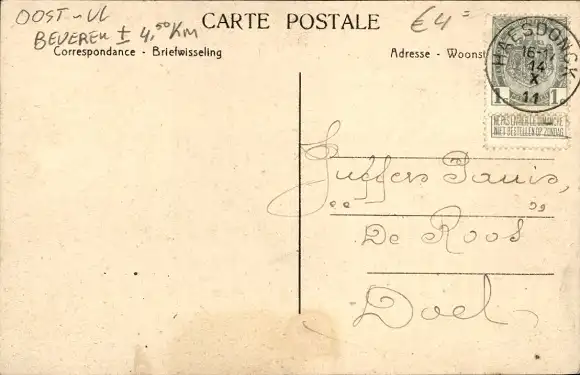 OOST-VL
BEVEREN ± 4,50 KM
CARTE POSTALE
€4=
Correspondance - Briefwisseling
Adresse - Woonst
HAESDONCK
16-17
14
X
11
1 1
NE PAS LIVRER LE DIMANCHE
NIET BESTELLEN OP ZONDAG
Juffers
De Roos
Doel